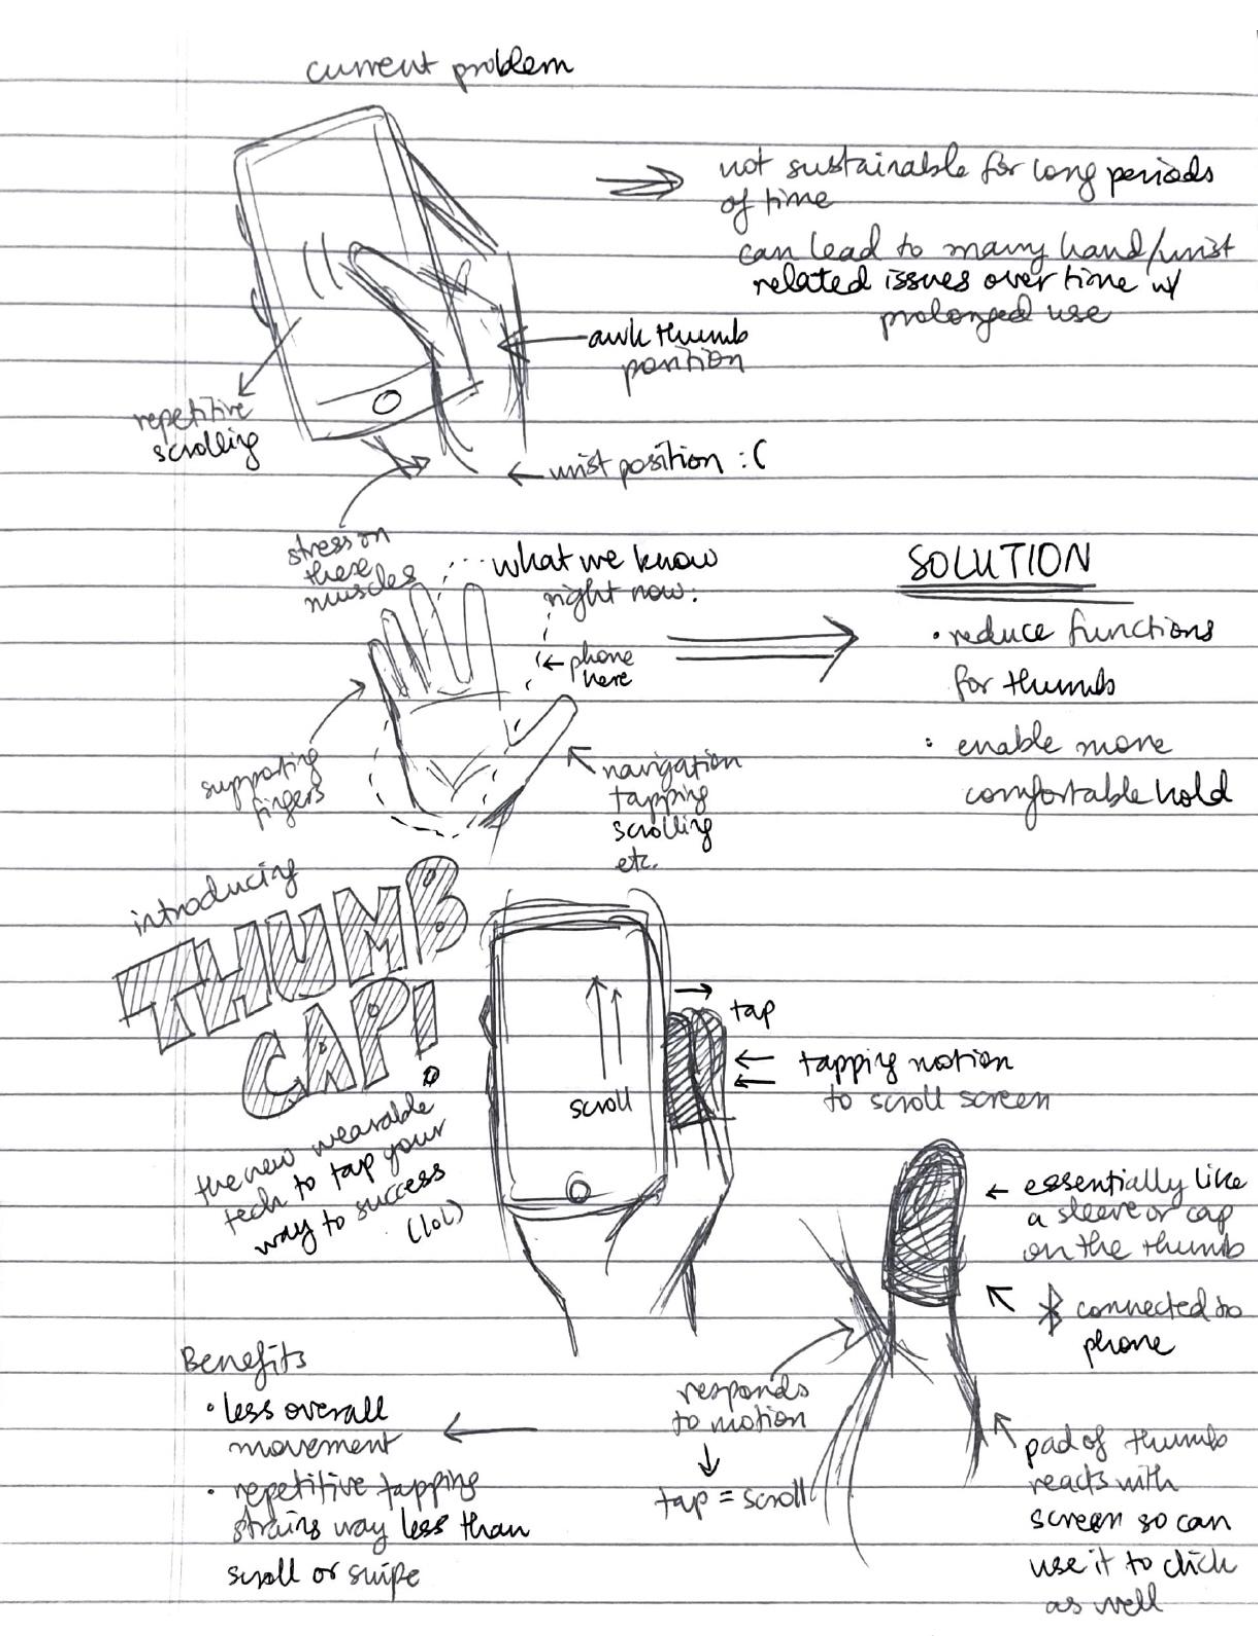 current problem
not sustainable for long periods
of time
can lead to many hand/wrist
related issues over time w/
prolonged use
awk thumb
position
repetitive
scrolling
wrist position :(
stress on
these
muscles
what we know
right now:
phone
here
supporting
fingers
navigation
tapping
scrolling
etc.
SOLUTION
• reduce functions
for thumb
• enable more
comfortable hold
introducing
THUMB
CAP!
the new wearable
tech to tap your
way to success
(lol)
scroll
tap
tapping motion
to scroll screen
essentially like
a sleeve or cap
on the thumb
connected to
phone
responds
to motion
tap = scroll
pad of thumb
reacts with
screen so can
use it to click
as well
Benefits
• less overall
movement
• repetitive tapping
strains way less than
scroll or swipe